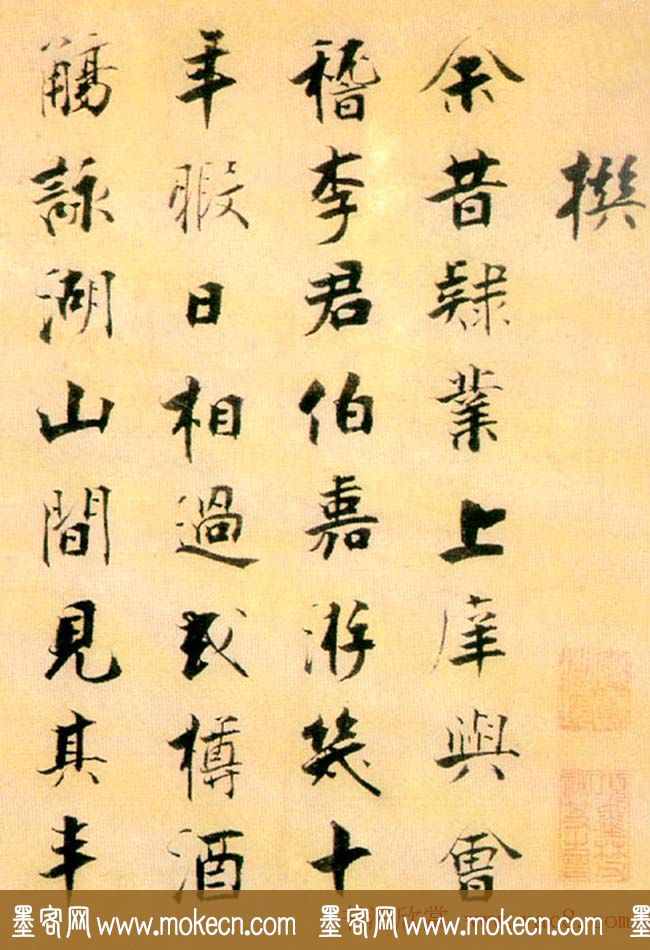 撰
余昔隸業上庠與會
稽李君伯嘉游幾十
年暇日相過或樽酒
觴詠湖山間見其丰
墨客网 www.mokecn.com 墨客网 www.mokecn.com 墨客网